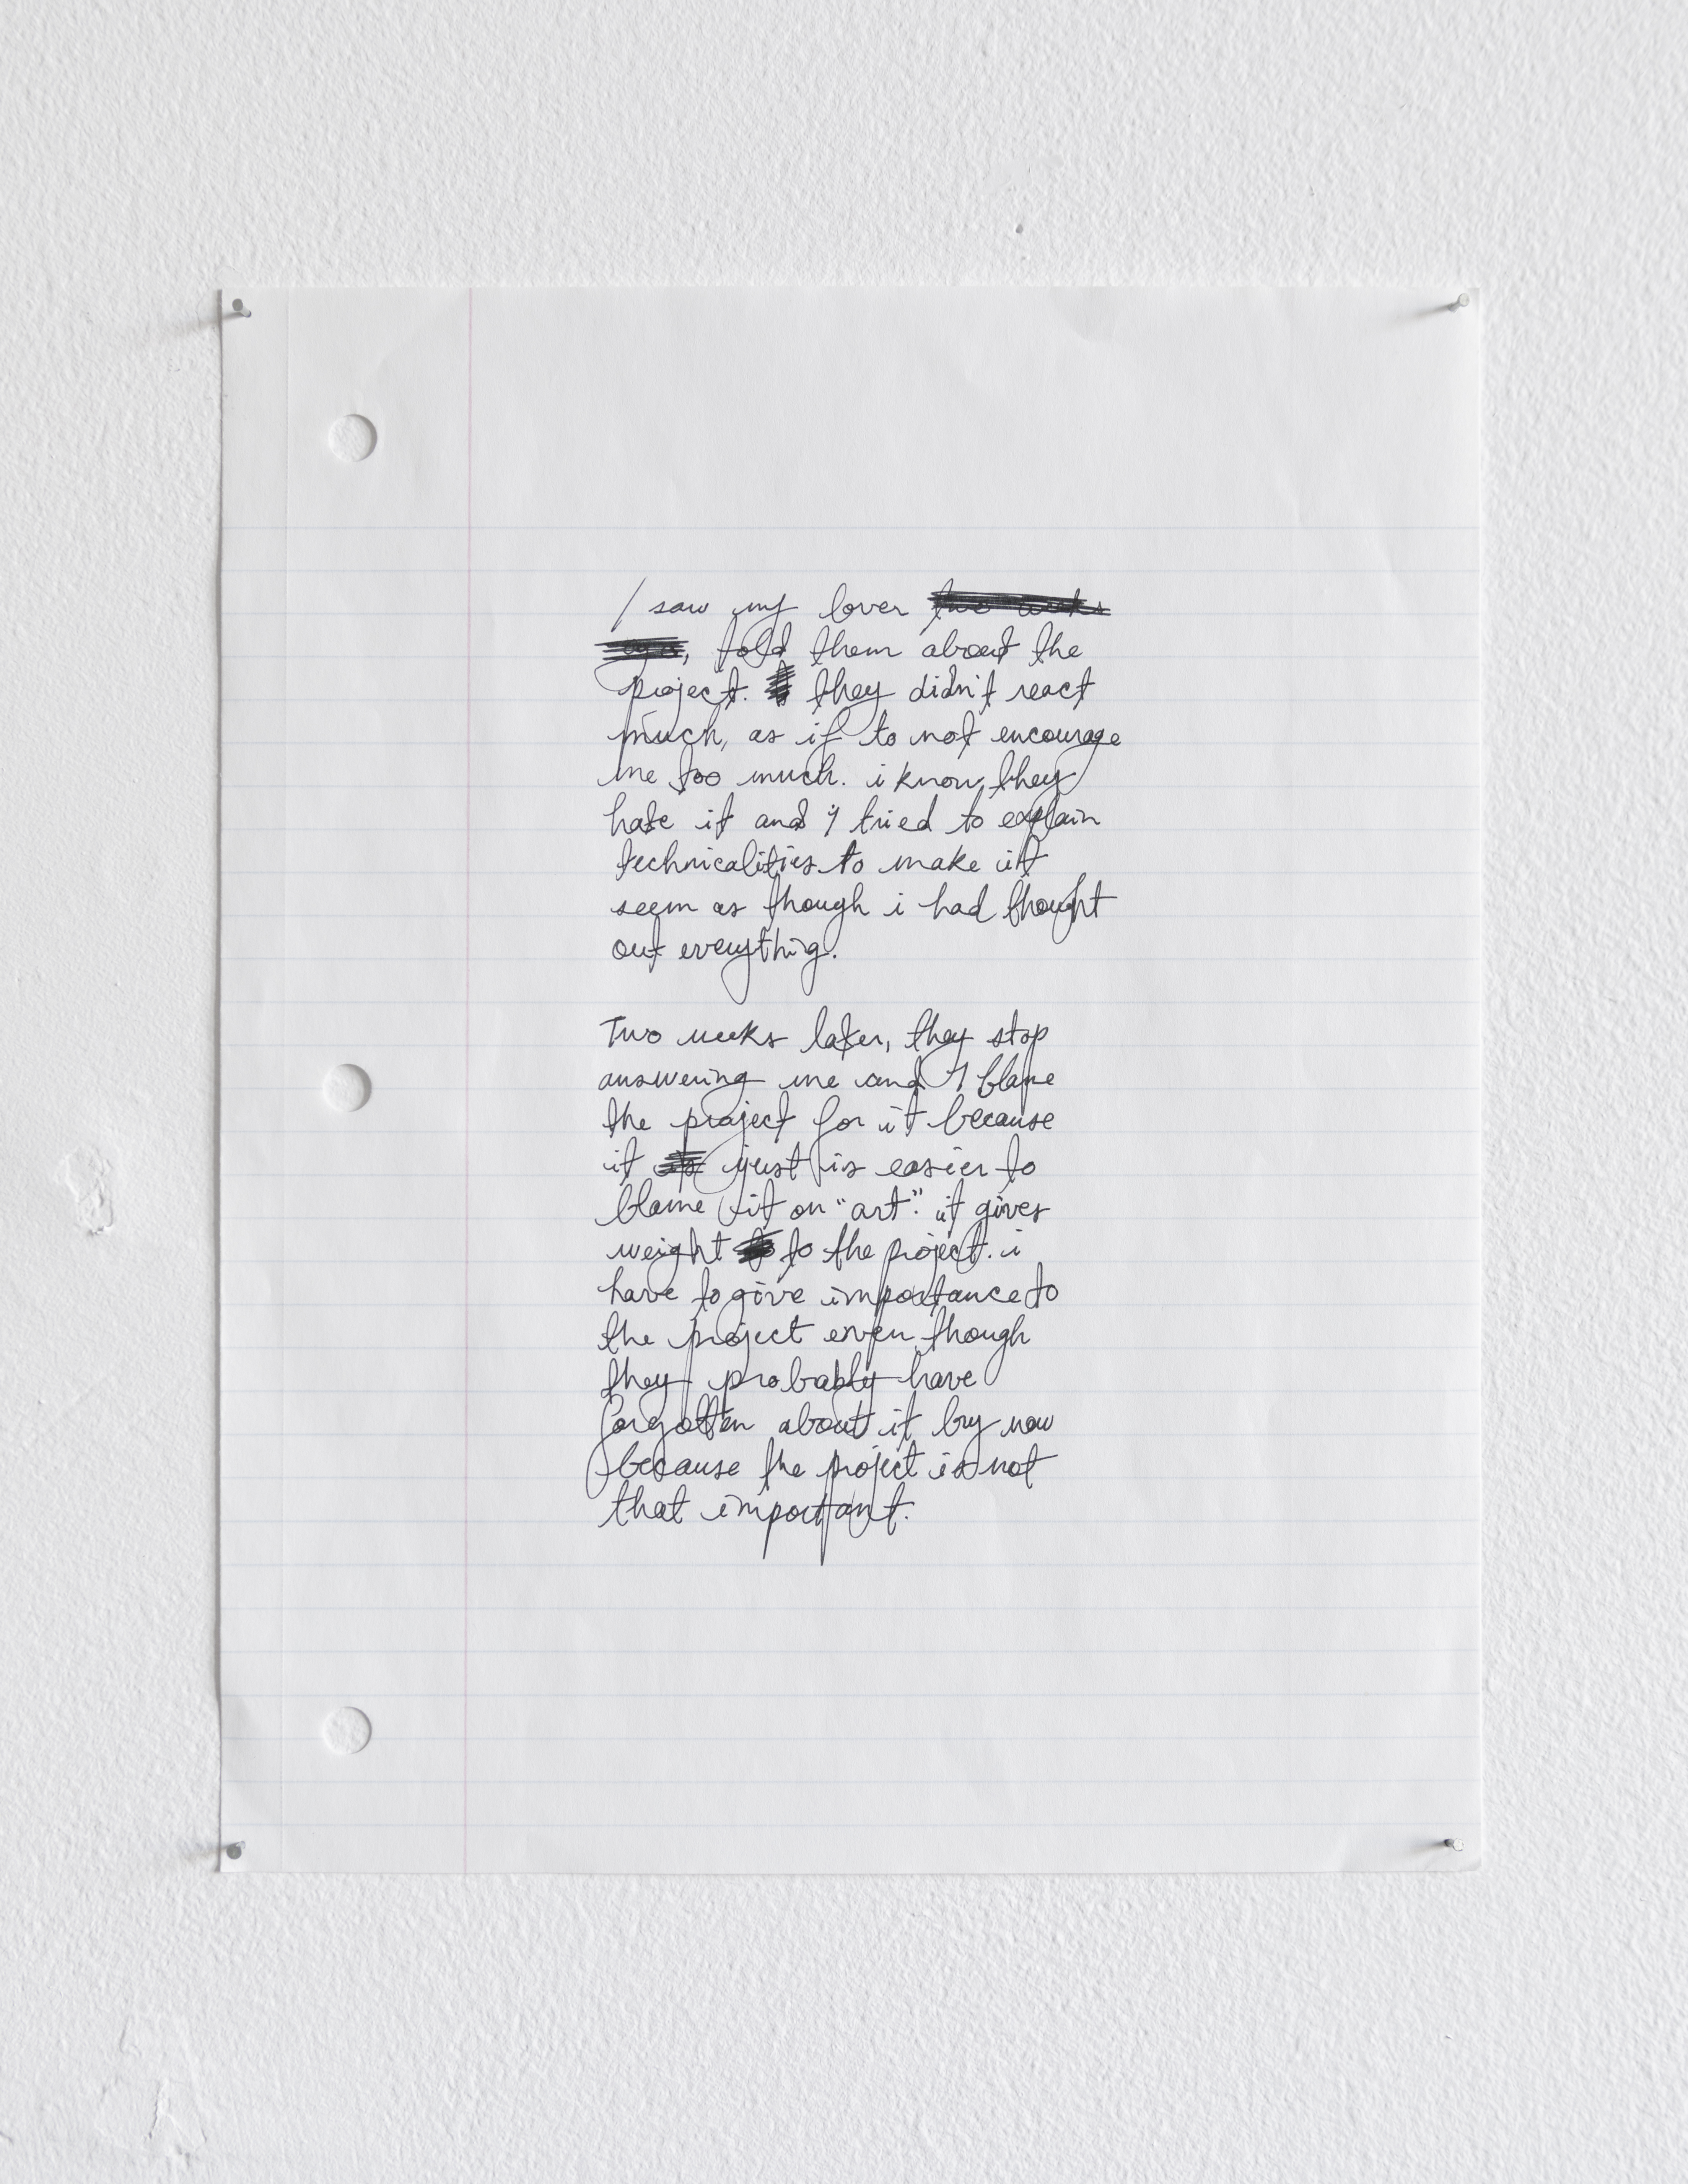 I saw my lover two weeks
ago, told them about the
project. they didn't react
much, as if to not encourage
me too much. i know they
hate it and I tried to explain
technicalities to make it
seem as though i had thought
out everything.
Two weeks later, they stop
answering me and I blame
the project for it because
it just is easier to
blame it on "art". it gives
weight to the project. i
have to give importance to
the project even though
they probably have
forgotten about it by now
because the project is not
that important.